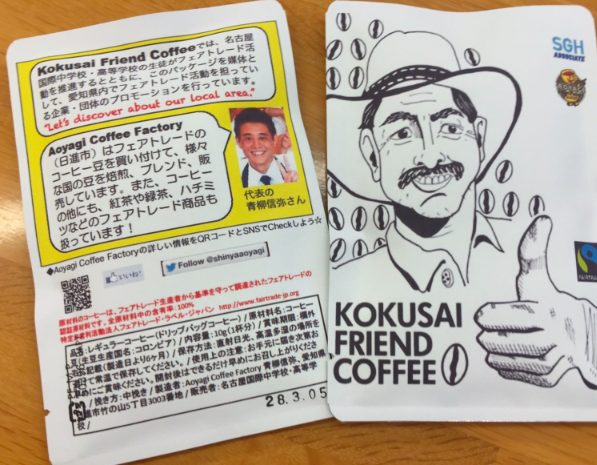 Kokusai Friend Coffeeでは、名古屋
国際中学校・高等学校の生徒がフェアトレード活
動を推進するとともに、このパッケージを媒体と
して、愛知県内でフェアトレード活動を担ってい
る企業・団体のプロモーションを行っています。
"Let's discover about our local area."
Aoyagi Coffee Factory
(日進市)はフェアトレードの
コーヒー豆を買い付けて、様々
な国の豆を焙煎、ブレンド、販
売しています。また、コーヒー
の他にも、紅茶や緑茶、ハチミ
ツなどのフェアトレード商品も
扱っています!
代表の
青柳信弥さん
◆Aoyagi Coffee Factoryの詳しい情報をQRコードとSNSでCheckしよう☆
いいね!
Follow @shinyaaoyagi
原材料のコーヒーは、フェアトレード生産者から基準を守って調達されたフェアトレードの
認証原材料です。全原材料中の含有率:100%
特定非営利活動法人フェアトレード・ラベル・ジャパン http://www.fairtrade-jp.org
品名:レギュラーコーヒー(ドリップバッグコーヒー) / 原材料名:コーヒー
豆(生豆生産国名:コロンビア) / 内容量:10g(1杯分) / 賞味期限:欄外
に記載(製造日より6ヶ月) / 保存方法:直射日光、高温多湿の場所を
避けて常温で保存してください。 / 使用上の注意:お手元に届き次第お
早めにご賞味ください。開封後はできるだけ早めにお召し上がりくださ
い / 挽き方:中挽き / 製造者:Aoyagi Coffee Factory 青柳信弥、愛知県
日進市竹の山5丁目3003番地 / 販売者:名古屋国際中学校・高等学
校
28.3.05
SGH
ASSOCIATE
KOKUSAI
FRIEND
COFFEE